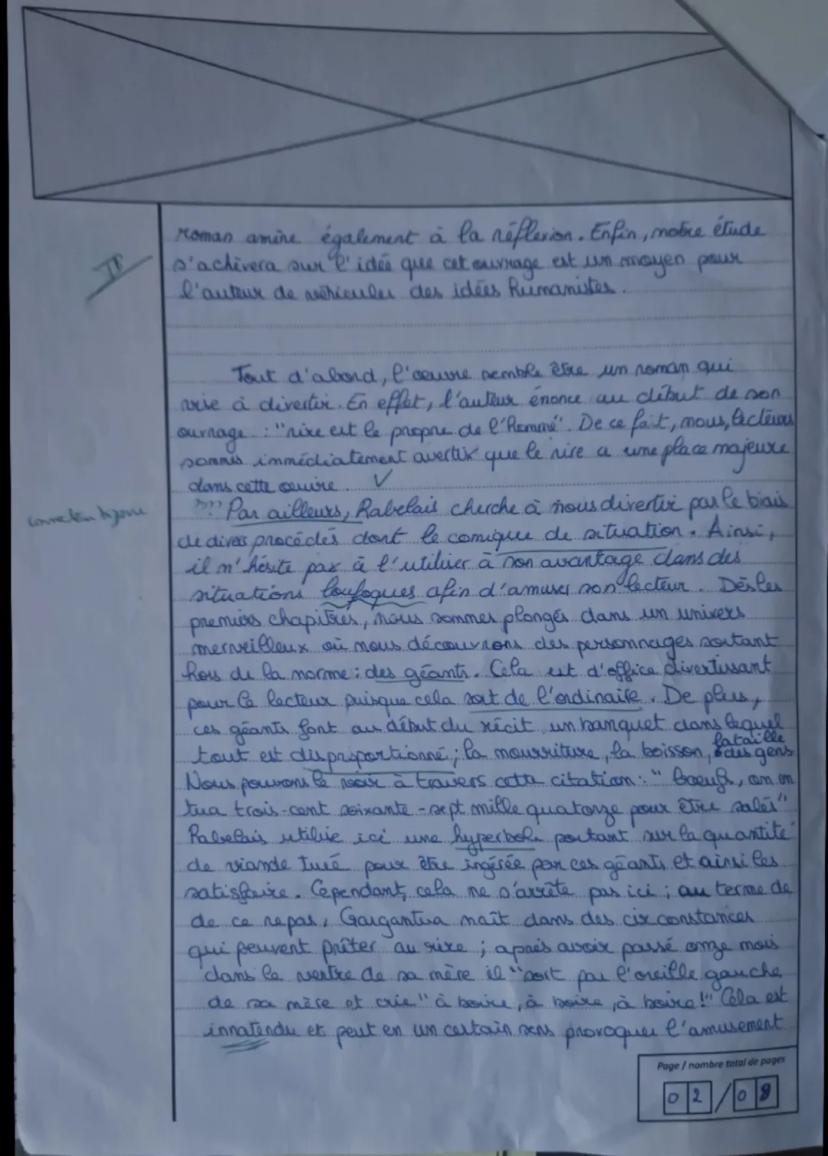 roman amène également à la réflexion. Enfin, notre étude
s'achivera sur l'idée que cet ouvrage est un moyen pour
l'auteur de véhiculer des idées humanistes.
Tout d'abord, l'œuvre semble être un roman qui
vise à divertir. En effet, l'auteur énonce au début de son
ouvrage : "rire est le propre de l'Homme". De ce fait, nous, lecteurs
sommes immédiatement avertis que le rire a une place majeure
dans cette œuvre.
Par ailleurs, Rabelais cherche à nous divertir par le biais
de divers procédés dont le comique de situation. Ainsi,
il n'hésite pas à l'utiliser à son avantage dans des
situations loufoques afin d'amuser son lecteur. Dès les
premiers chapitres, nous sommes plongés dans un univers
merveilleux où nous découvrons des personnages sortant
hors de la norme : des géants. Cela est d'office divertissant
pour le lecteur puisque cela sort de l'ordinaire. De plus,
ces géants font au début du récit un banquet dans lequel
tout est disproportionné ; la nourriture, la boisson, la taille des gens
Nous pouvons le voir à travers cette citation : " bœufs, on en
tua trois-cent soixante-sept mille quatorze pour être salés"
Rabelais utilise ici une hyperbole portant sur la quantité
de viande tué pour être ingérée par ces géants et ainsi les
satisfaire. Cependant, cela ne s'arrête pas ici ; au terme de
de ce repas, Gargantua naît dans des circonstances
qui peuvent prêter au rire ; après avoir passé onze mois
dans le ventre de sa mère il "sort par l'oreille gauche
de sa mère et crie "à boire, à boire, à boire!" Cela est
innatendu et peut en un certain sens provoquer l'amusement
Page / nombre total de pages
02/08